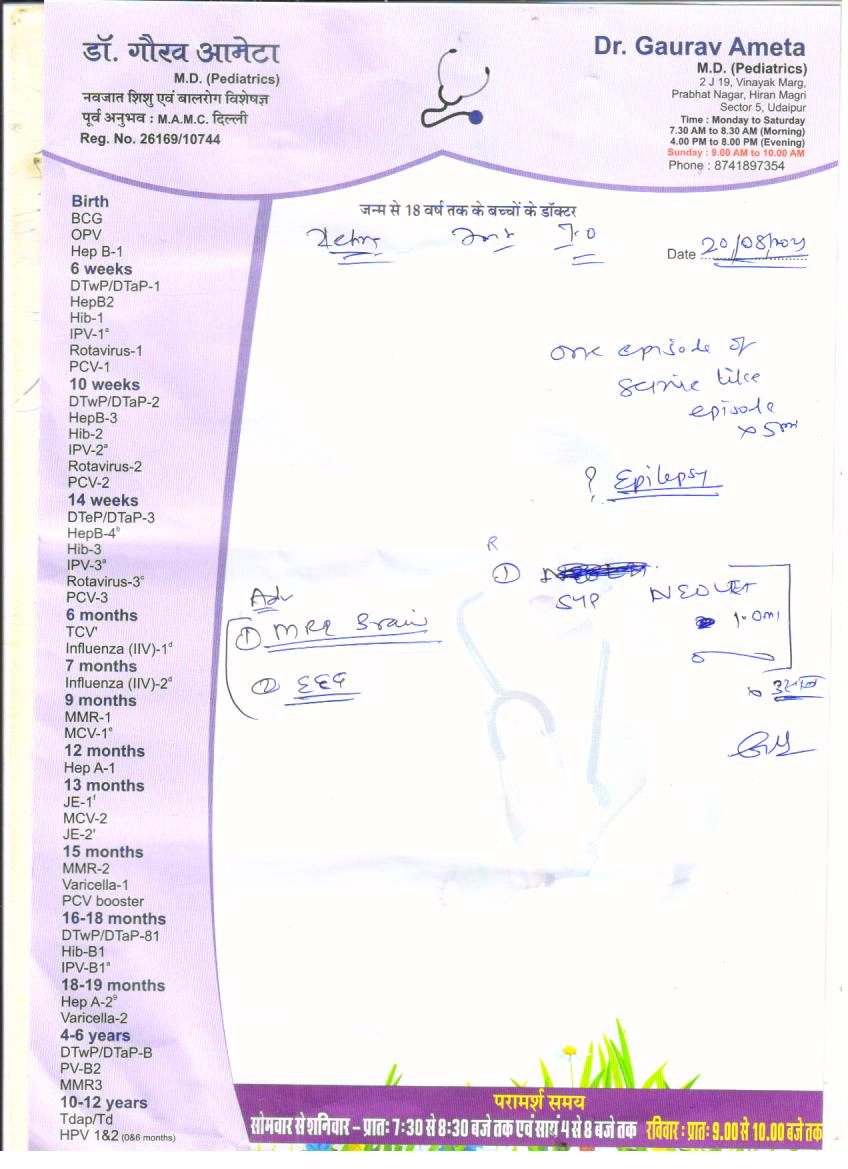 डॉ. गौरव आमेटा
M.D. (Pediatrics)
नवजात शिशु एवं बालरोग विशेषज्ञ
पूर्व अनुभव : M.A.M.C. दिल्ली
Reg. No. 26169/10744
Dr. Gaurav Ameta
M.D. (Pediatrics)
2 J 19, Vinayak Marg,
Prabhat Nagar, Hiran Magri
Sector 5, Udaipur
Time : Monday to Saturday
7.30 AM to 8.30 AM (Morning)
4.00 PM to 8.00 PM (Evening)
Sunday : 9.00 AM to 10.00 AM
Phone : 8741897354
Birth
BCG
OPV
Hep B-1
6 weeks
DTwP/DTaP-1
HepB2
Hib-1
IPV-1ª
Rotavirus-1
PCV-1
10 weeks
DTwP/DTaP-2
HepB-3
Hib-2
IPV-2ª
Rotavirus-2
PCV-2
14 weeks
DTeP/DTaP-3
HepB-4ᵇ
Hib-3
IPV-3ª
Rotavirus-3ᶜ
PCV-3
6 months
TCV'
Influenza (IIV)-1ᵈ
7 months
Influenza (IIV)-2ᵈ
9 months
MMR-1
MCV-1ᵉ
12 months
Hep A-1
13 months
JE-1ᶠ
MCV-2
JE-2'
15 months
MMR-2
Varicella-1
PCV booster
16-18 months
DTwP/DTaP-81
Hib-B1
IPV-B1ª
18-19 months
Hep A-2ᵍ
Varicella-2
4-6 years
DTwP/DTaP-B
PV-B2
MMR3
10-12 years
Tdap/Td
HPV 1&2 (0&6 months)
जन्म से 18 वर्ष तक के बच्चों के डॉक्टर
7.0
Date 20/08/
one episode of
like
episode
? Epilepsy
R
①
SYP
1.0ml
Adv
① MRI Brain
② EEG
परामर्श समय
सोमवार से शनिवार – प्रातः 7:30 से 8:30 बजे तक एवं सायं 4 से 8 बजे तक रविवार : प्रातः 9.00 से 10.00 बजे तक